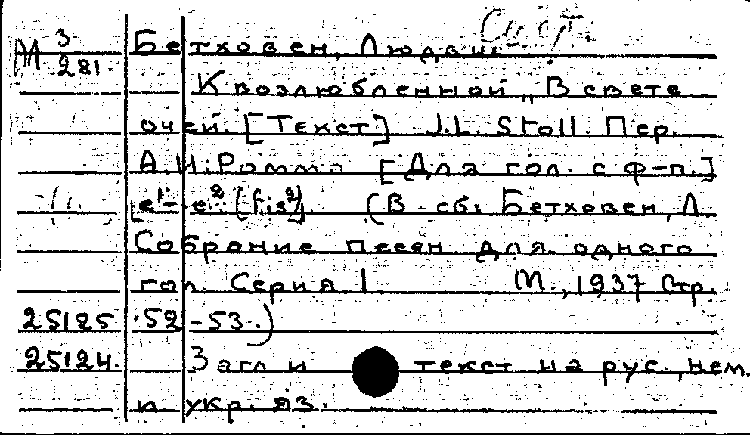 М 3 Бетховен, Людвиг
281
К возлюбленной „В свете
очей. [Текст] J.L. Stoll. Пер.
А.И. Ромма [Для гол. с ф-п.]
[e¹-e² (fis²)] (В сб. Бетховен, Л.
Собрание песен для одного
гол. Серия I. М., 1937 Стр.
25125 52-53.)
25124. Загл и текст на рус., нем.
и укр. яз.